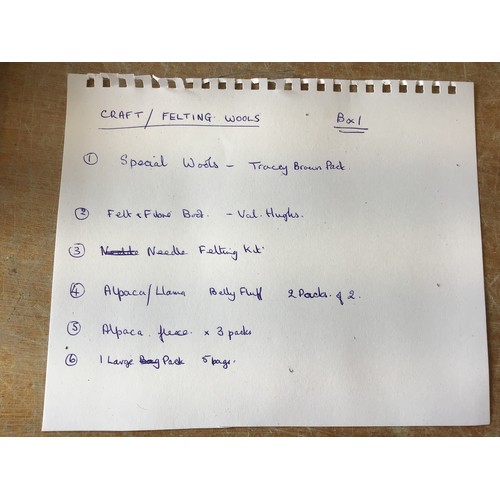 CRAFT / FELTING WOOLS Box 1
① Special Wools - Tracey Brown Pack
② Felt & Fibre - Val. Hughs.
③ Needle Felting Kit
④ Alpaca/Llama Belly Fluff 2 Packs of 2.
⑤ Alpaca x 3 packs
⑥ 1 Large Pack 5 bags.